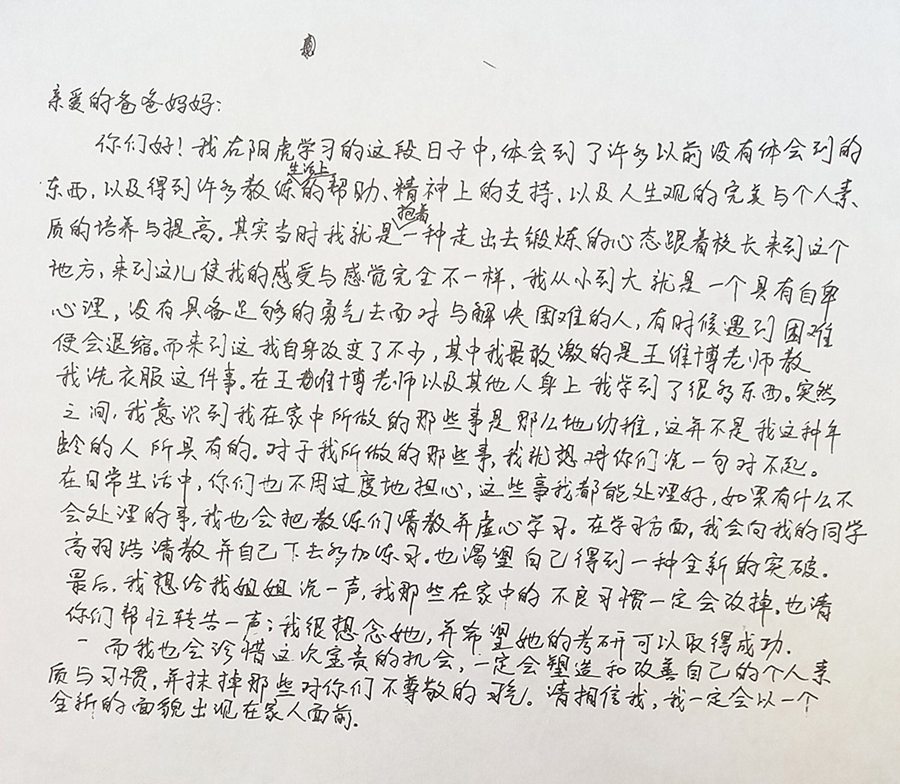 亲爱的爸爸妈妈:
你们好!我在阳虎学习的这段日子中,体会到了许多以前没有体会到的
东西,以及得到许多教练生活上的帮助、精神上的支持,以及人生观的完美与个人素
质的培养与提高。其实当时我就是抱着一种走出去锻炼的心态跟着校长来到这个
地方,来到这儿使我的感受与感觉完全不一样,我从小到大就是一个具有自卑
心理,没有具备足够的勇气去面对与解决困难的人,有时候遇到困难
便会退缩。而来到这我自身改变了不少,其中我最敢激的是王维博老师教
我洗衣服这件事。在王维博老师以及其他人身上我学到了很多东西。突然
之间,我意识到我在家中所做的那些事是那么地幼稚,这并不是我这种年
龄的人所具有的。对于我所做的那些事,我就想对你们说一句对不起。
在日常生活中,你们也不用过度地担心,这些事我都能处理好,如果有什么不
会处理的事,我也会把教练们请教并虚心学习。在学习方面,我会向我的同学
高羽浩请教并自己下去多加练习。也渴望自己得到一种全新的突破.
最后,我想给我姐姐说一声,我那些在家中的不良习惯一定会改掉,也请
你们帮忙转告一声;我很想念她,并希望她的考研可以取得成功.
而我也会珍惜这次宝贵的机会,一定会塑造和改善自己的个人素
质与习惯,并抹掉那些对你们不尊敬的习气。请相信我,我一定会以一个
全新的面貌出现在家人面前.